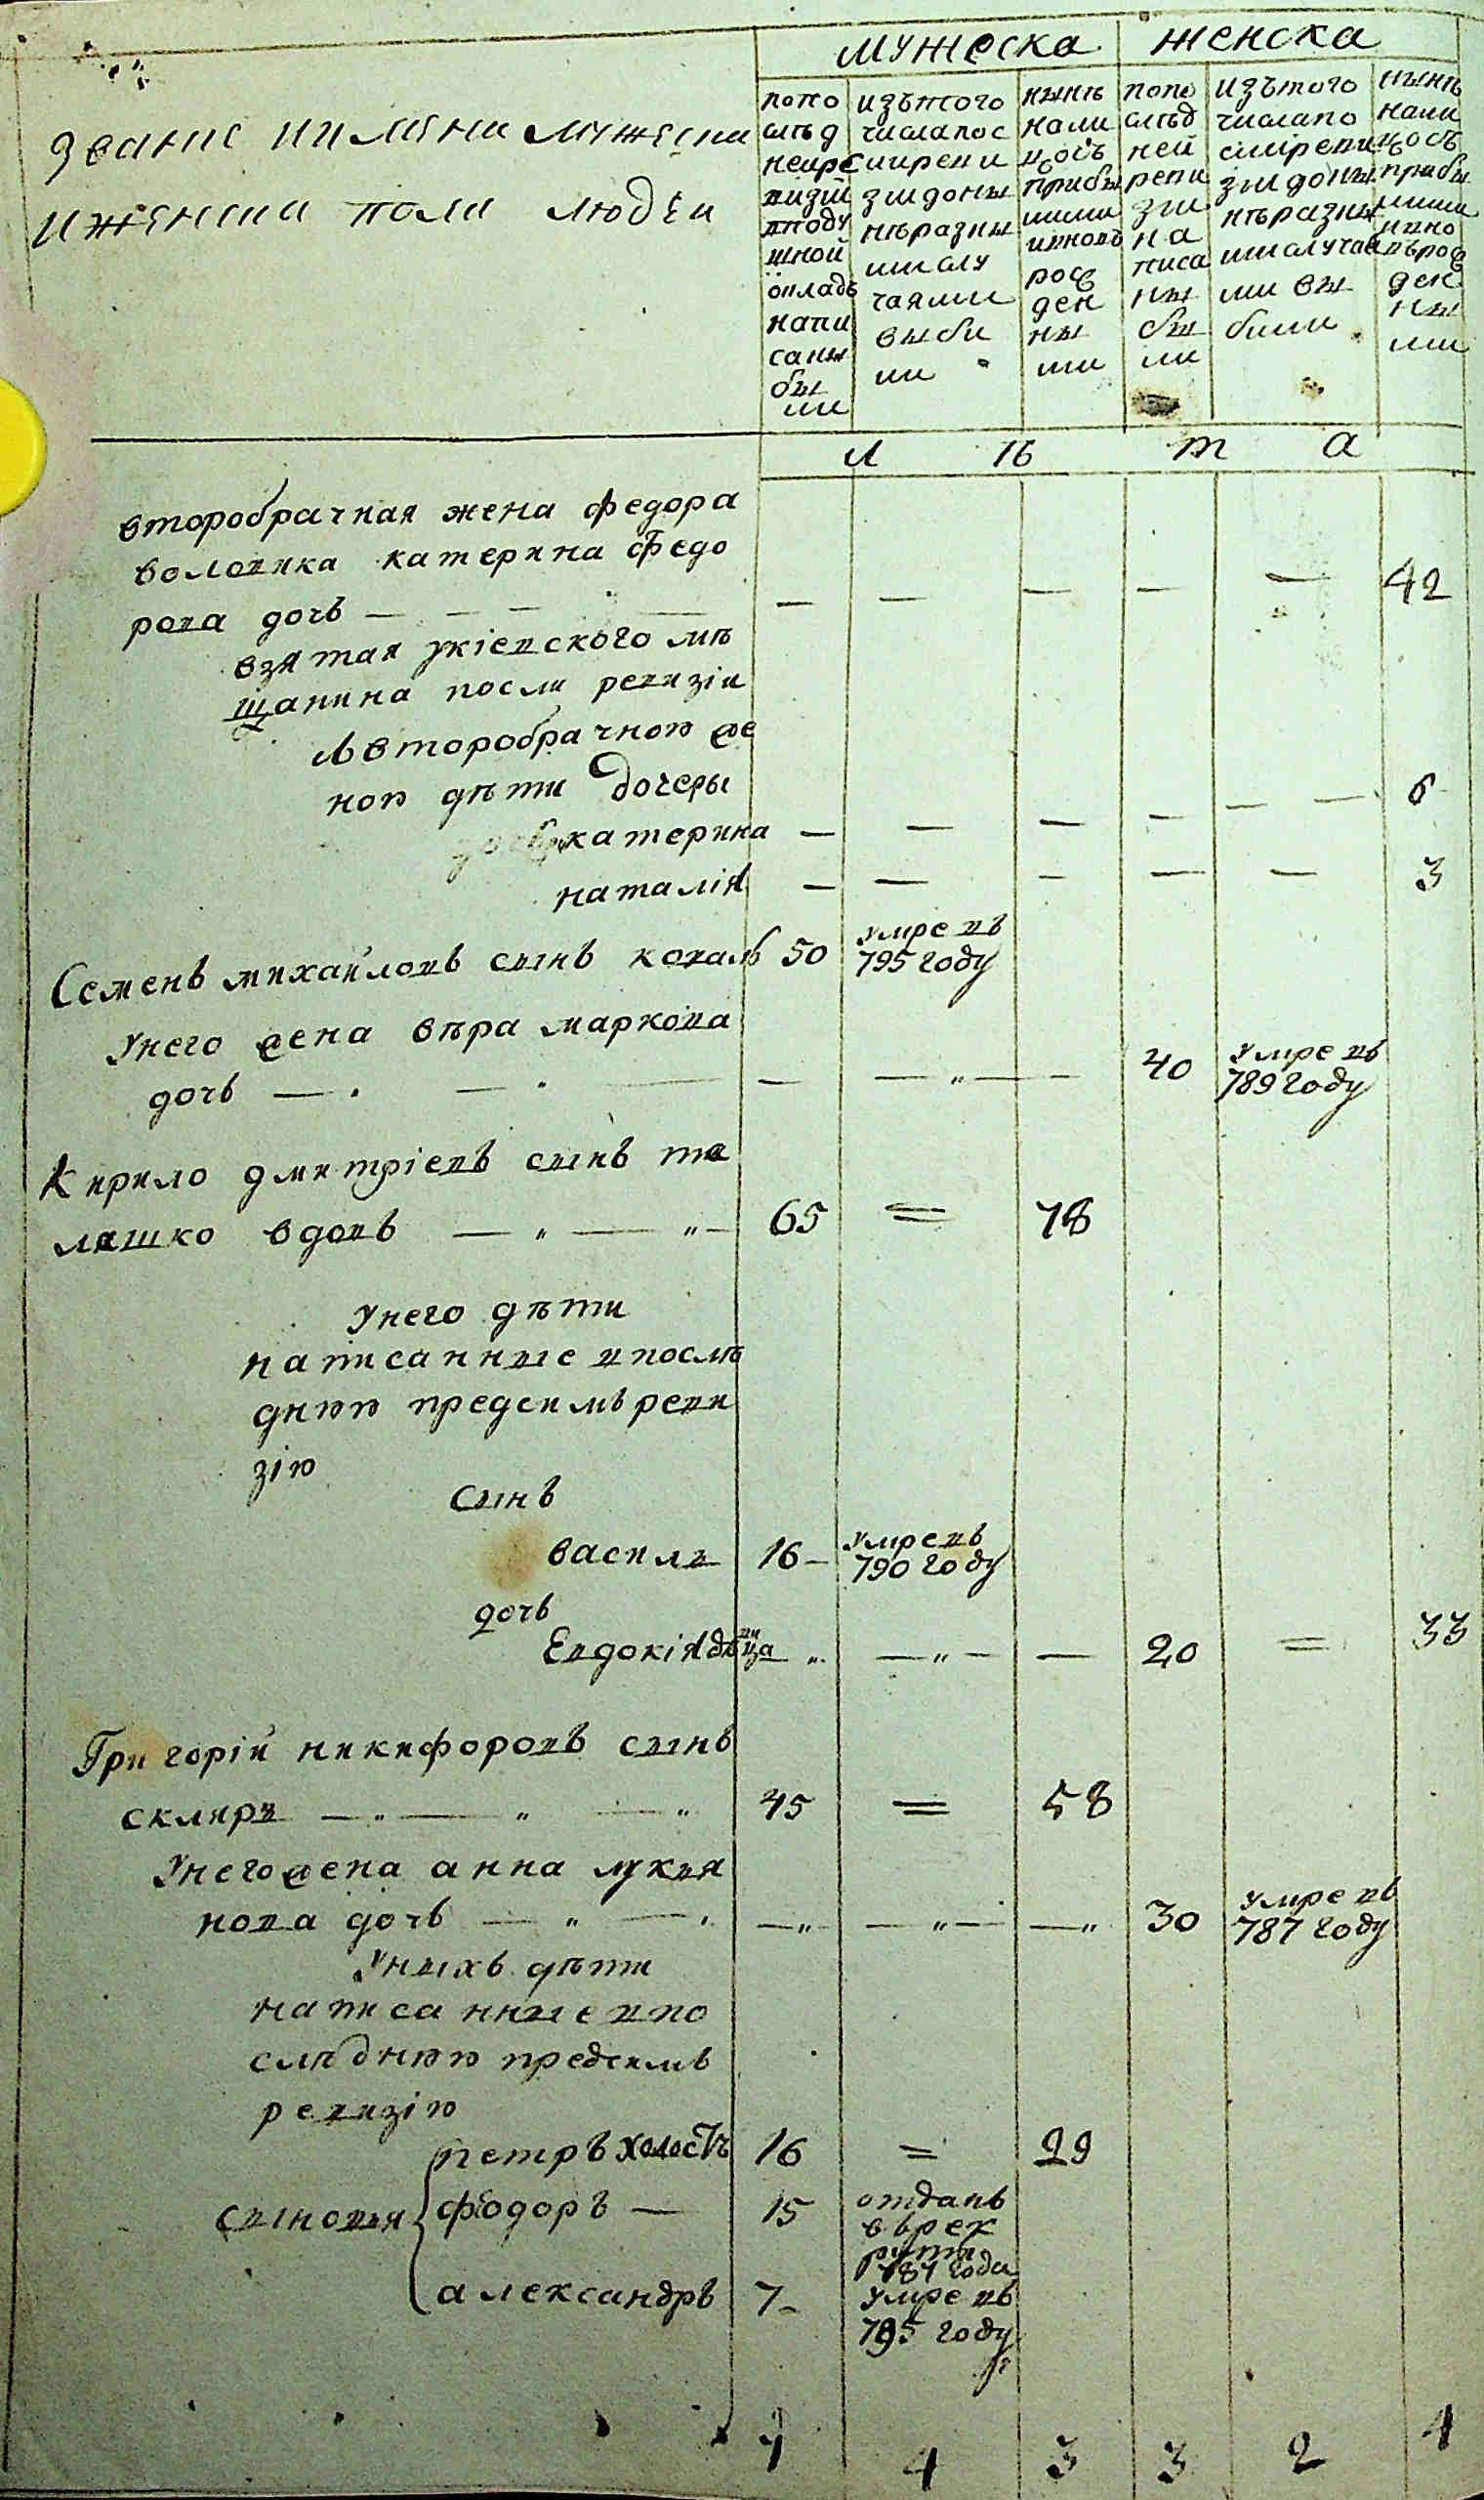 мужеска женска
звание иимяна мужеска
иженска пола людеи
попо
слѣд
неире
визіи
вподу
шной
окладъ
напи
саны
бы
ли
изътого
числапос
лиревни
зиидоны
нѣразны
мислу
чаями
выбы
ли
нынѣ
нали
цосъ
прибы
лими
ивновъ
рож
ден
ны
ми
попо
слѣд
ней
реви
зии
на
писа
ны
бы
ли
изътого
числапо
слѣреви
зиидоны
нѣразны
мислучая
ми вы
были
нынѣ
нали
цосъ
прибы
лими
ивно
върож
ден
ны
ми
л ѣ т а
второбрачная жена федора
воловика катерина Федо
рова дочь — — — — — — — — — 42
взятая укіевского мѣ
щанина посли ревизіи
Ѿвторобрачной же
ной дѣти дочеры
катерина — — — — — — 6
наталія — — — — — 3
Семенъ михайловъ сынъ коваль 50 умревъ
795 году
Унего жена вѣра маркова
дочь — — — — — " — — 40 умревъ
789 году
Кирило дмитріевъ сынъ та
лашко вдовъ — " — " — 65 = 78
Унего дѣти
написанные впослѣ
днюю предсимъ реви
зію
сынъ
василь 16 — умревъ
790 году
дочь
Евдокія дѣвица " — " — — 20 = 33
Григорій никифоровъ сынъ
скляръ — " — " — " 45 = 58
Унего жена анна лукья
нова дочь — " — " — " — " — — " 30 умревъ
787 году
Уныхъ дѣти
написанные впо
слѣднюю предсимъ
ревизію
сыновья
петръ холостъ 16 = 29
федоръ — 15 отданъ
въ рек
руты
787 года
александръ 7 — умревъ
795 году
7 4 3 3 2 4